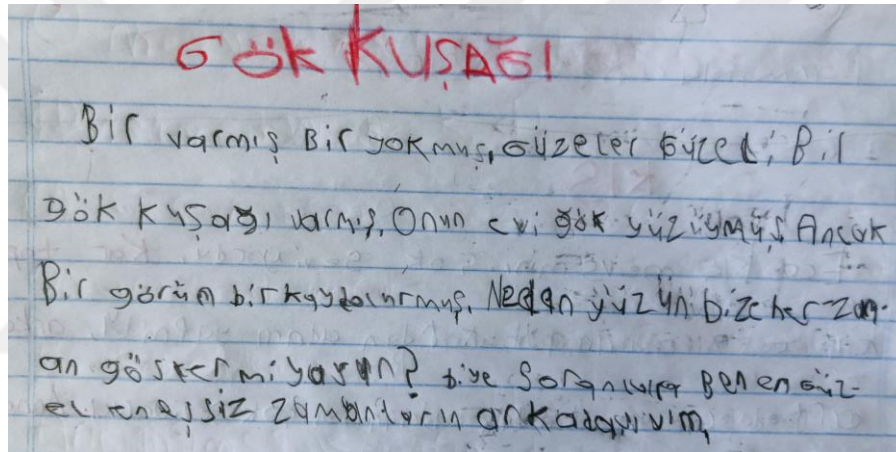 GÖK KUŞAĞI
Bir varmış Bir yokmuş, Güzeler Güzeli Bir
gök kuşağı varmış, Onun evi gök yüzüymüş Ancak
Bir görün bir kaybolurmuş. Neden yüzünü bize her zam-
an göstermiyorsun? diye Soranlara Ben en Güz-
el en eşsiz zamanların arkadaşıyım,